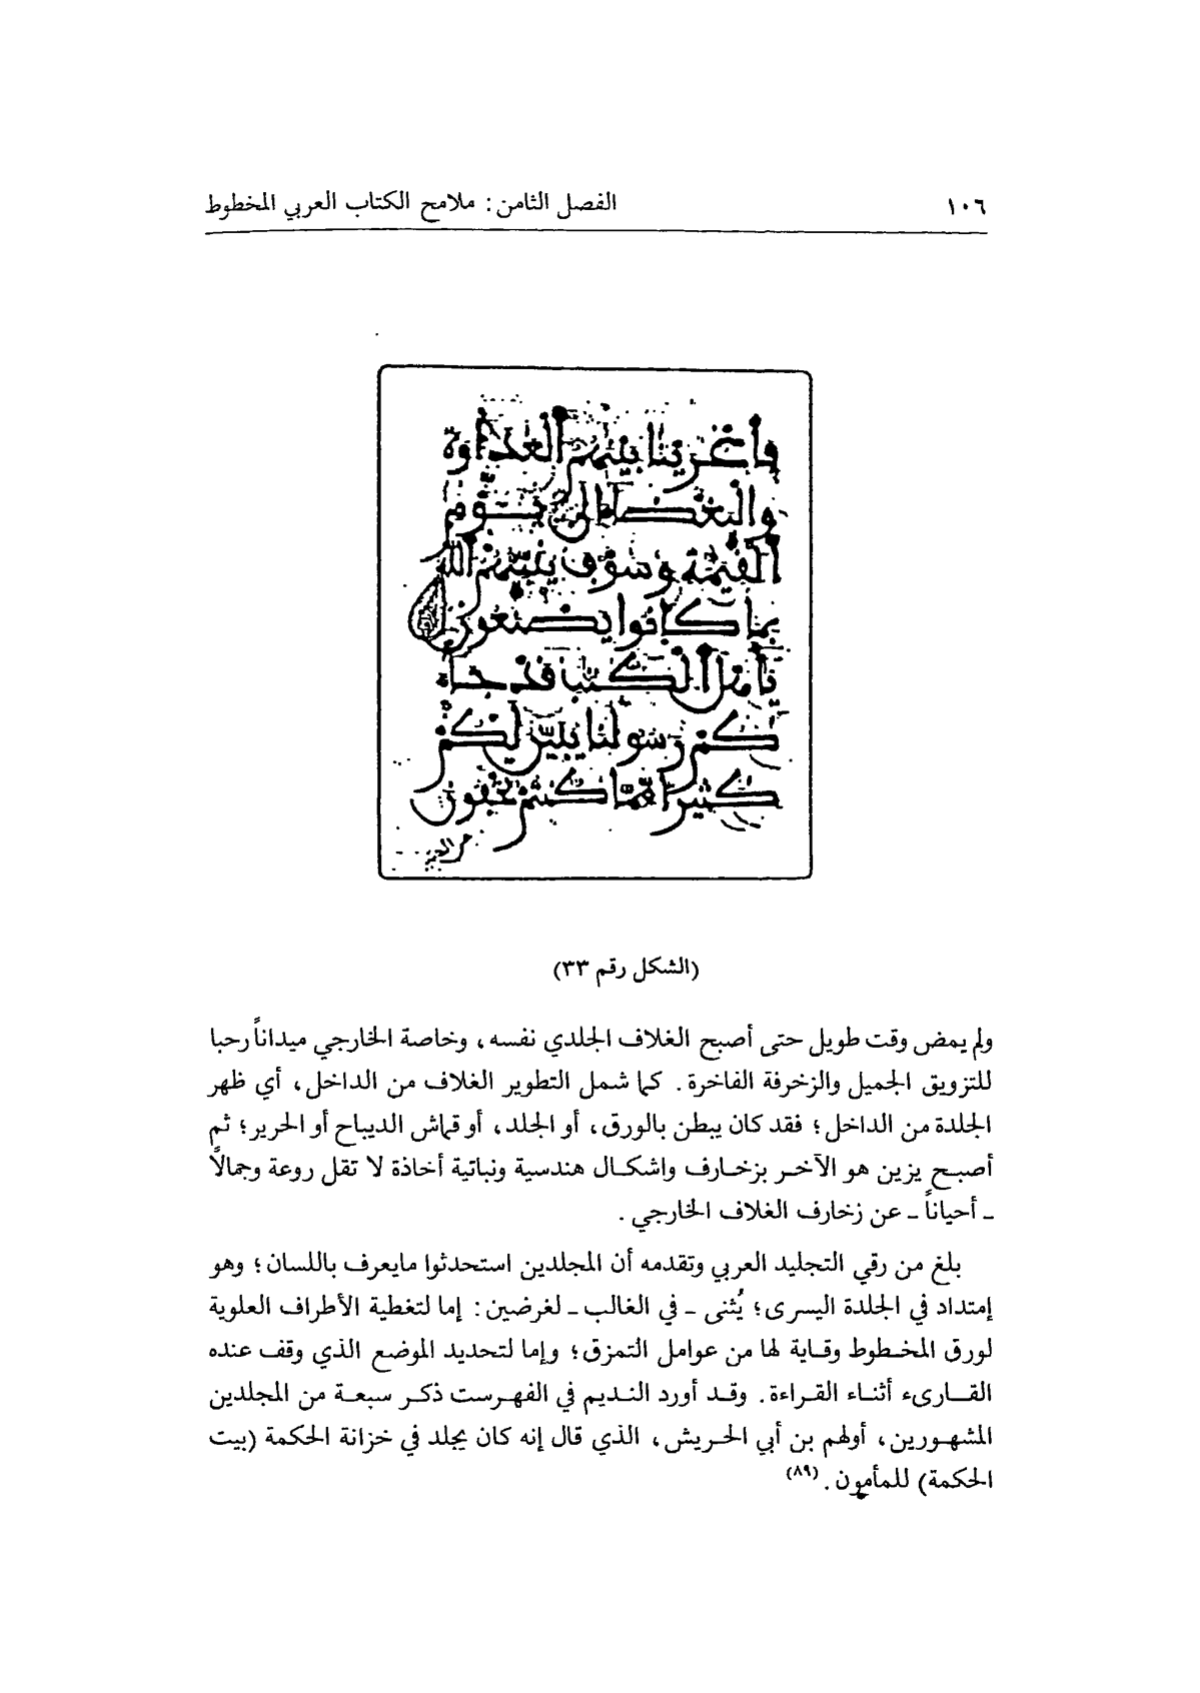 ١٠٦
الفصل الثامن: ملامح الكتاب العربي المخطوط
فأغرينا بينهم العداوة
والبغضاء إلى يوم
القيمة وسوف ينبئهم الله
بما كانوا يصنعون
يأهل الكتب قد جاء
كم رسولنا يبين لكم
كثيرا مما كنتم تخفون
(الشكل رقم ٣٣)
ولم يمض وقت طويل حتى أصبح الغلاف الجلدي نفسه، وخاصة الخارجي ميداناً رحبا
للتزويق الجميل والزخرفة الفاخرة. كما شمل التطوير الغلاف من الداخل، أي ظهر
الجلدة من الداخل؛ فقد كان يبطن بالورق، أو الجلد، أو قماش الديباح أو الحرير؛ ثم
أصبح يزين هو الآخر بزخارف واشكال هندسية ونباتية أخاذة لا تقل روعة وجمالاً
ـ أحياناً ـ عن زخارف الغلاف الخارجي.
بلغ من رقي التجليد العربي وتقدمه أن المجلدين استحدثوا مايعرف باللسان؛ وهو
إمتداد في الجلدة اليسرى؛ يُثنى ـ في الغالب ـ لغرضين: إما لتغطية الأطراف العلوية
لورق المخطوط وقاية لها من عوامل التمزق؛ وإما لتحديد الموضع الذي وقف عنده
القارىء أثناء القراءة. وقد أورد النديم في الفهرست ذكر سبعة من المجلدين
المشهورين، أولهم بن أبي الحريش، الذي قال إنه كان يجلد في خزانة الحكمة (بيت
الحكمة) للمأمون. (٨٩)